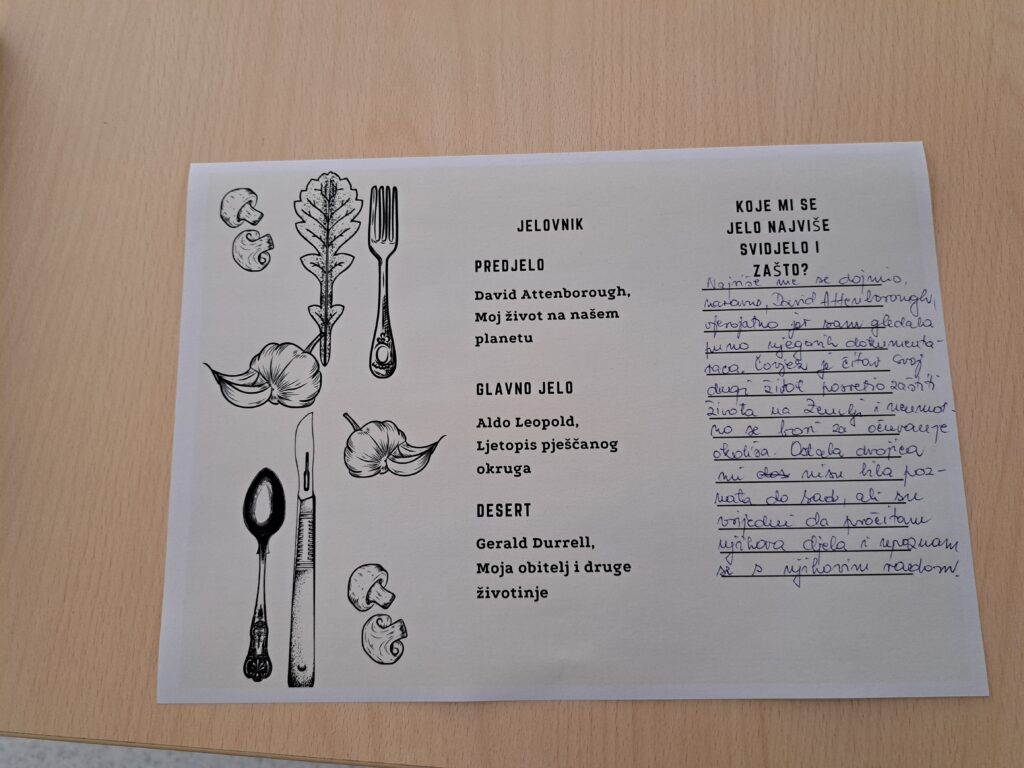 JELOVNIK
PREDJELO
David Attenborough,
Moj život na našem
planetu
GLAVNO JELO
Aldo Leopold,
Ljetopis pješčanog
okruga
DESERT
Gerald Durrell,
Moja obitelj i druge
životinje
KOJE MI SE
JELO NAJVIŠE
SVIDJELO I
ZAŠTO?
Najviše me se dojmio,
naravno, David Attenborough,
vjerojatno jer sam gledala
puno njegovih dokumenta-
raca. Čovjek je čitav svoj
drugi život posvetio zaštiti
života na Zemlji i neumor-
no se bori za očuvanje
okoliša. Ostala dvojica
mi nisu bila poz-
nata do sad, ali su
vrijedni da pročitam
njihova djela i upoznam
se s njihovim radom.